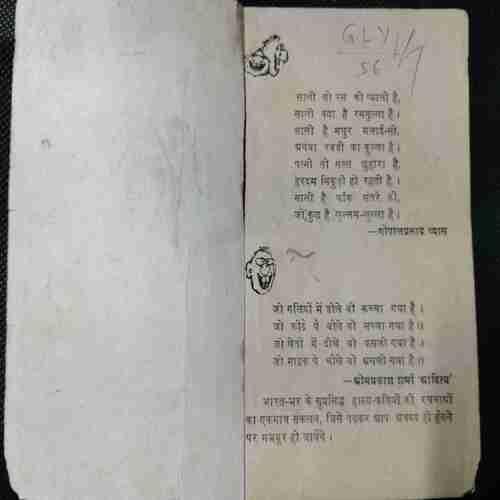 GLY 1/7
56
साली तो रस की प्याली है,
साली क्या है रसगुल्ला है।
साली है मधुर मलाई-सी,
अथवा रबड़ी का कुल्ला है।
पत्नी तो सख्त छुहारा है,
हरदम सिकुड़ी ही रहती है।
साली है फाँक संतरे की,
जो कुछ है खुल्लम-खुल्ला है।
—गोपालप्रसाद व्यास
जो गलियों में डोले वो कच्चा गधा है।
जो कोठे पे बोले वो सच्चा गधा है॥
जो खेतों में दीखे वो फसली गधा है।
जो माइक पे चीखे वो असली गधा है॥
—ओमप्रकाश शर्मा 'आदित्य'
भारत-भर के सुप्रसिद्ध हास्य-कवियों की रचनाओं
का एकमात्र संकलन, जिसे पढ़कर आप अवश्य ही हँसने
पर मजबूर हो जायेंगे।